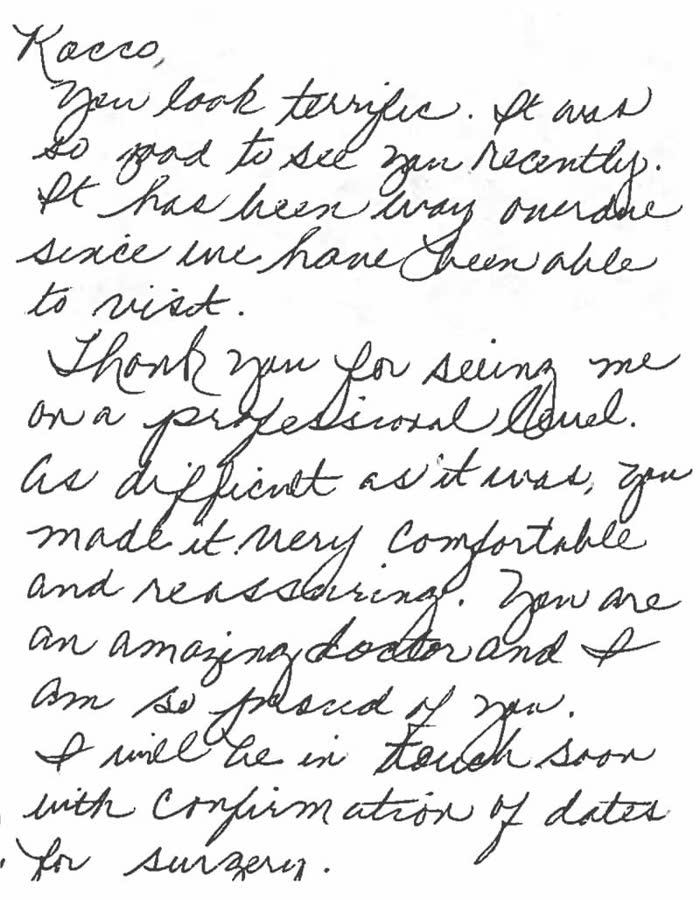 Rocco,
You look terrific. It was
so good to see you recently.
It has been way overdue
since we have been able
to visit.
Thank you for seeing me
on a professional level.
As difficult as it was, you
made it very comfortable
and reassuring. You are
an amazing doctor and I
am so proud of you.
I will be in touch soon
with confirmation of dates
for surgery.